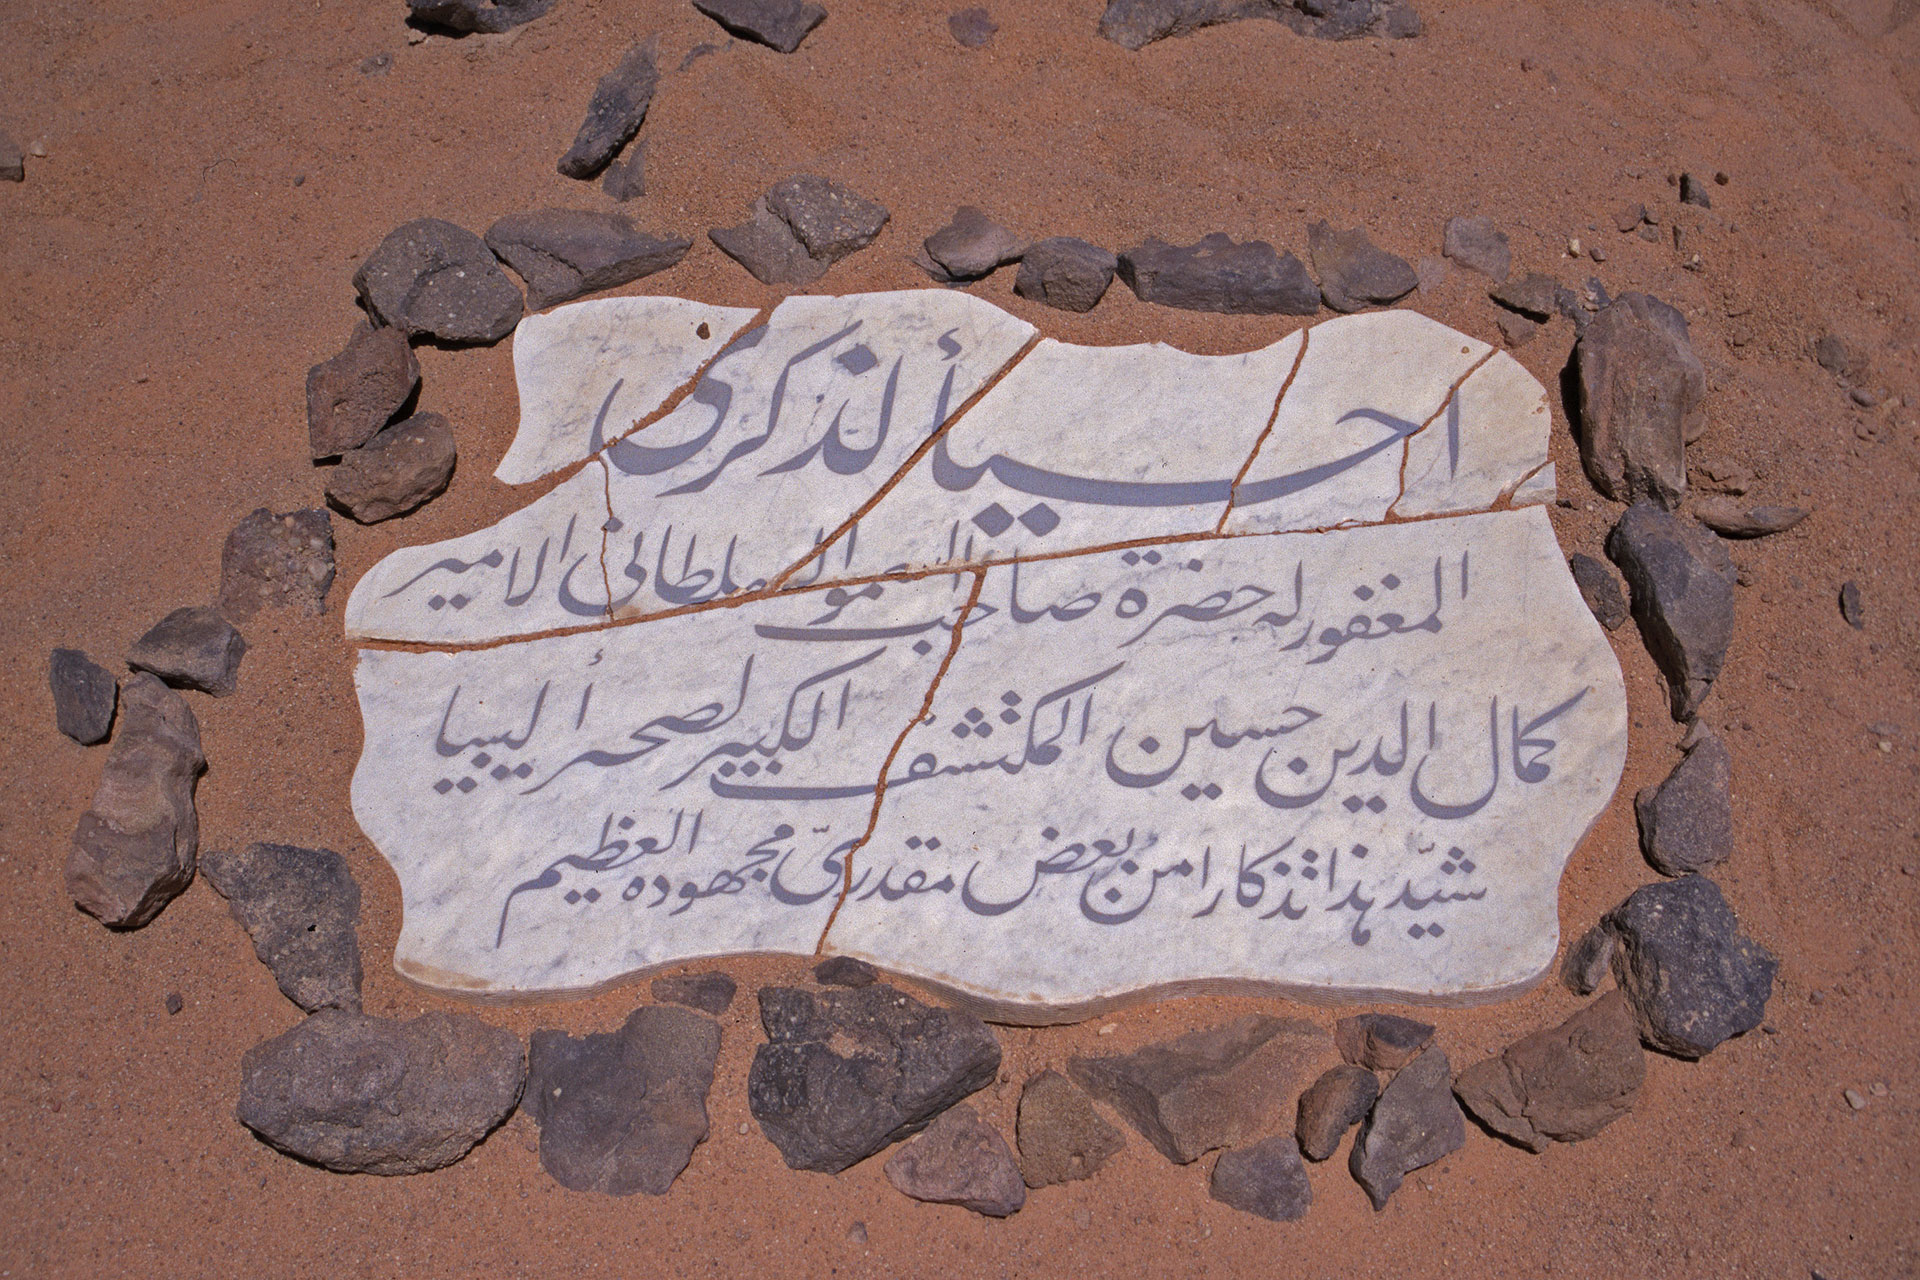 احيأ لذكرى
المغفور له حضرة صاحب السمو السلطاني الامير
كمال الدين حسين المكتشف الكبير لصحرأ ليبيا
شيّد هذا تذكارا من بعض مقدريّ مجهوده العظيم